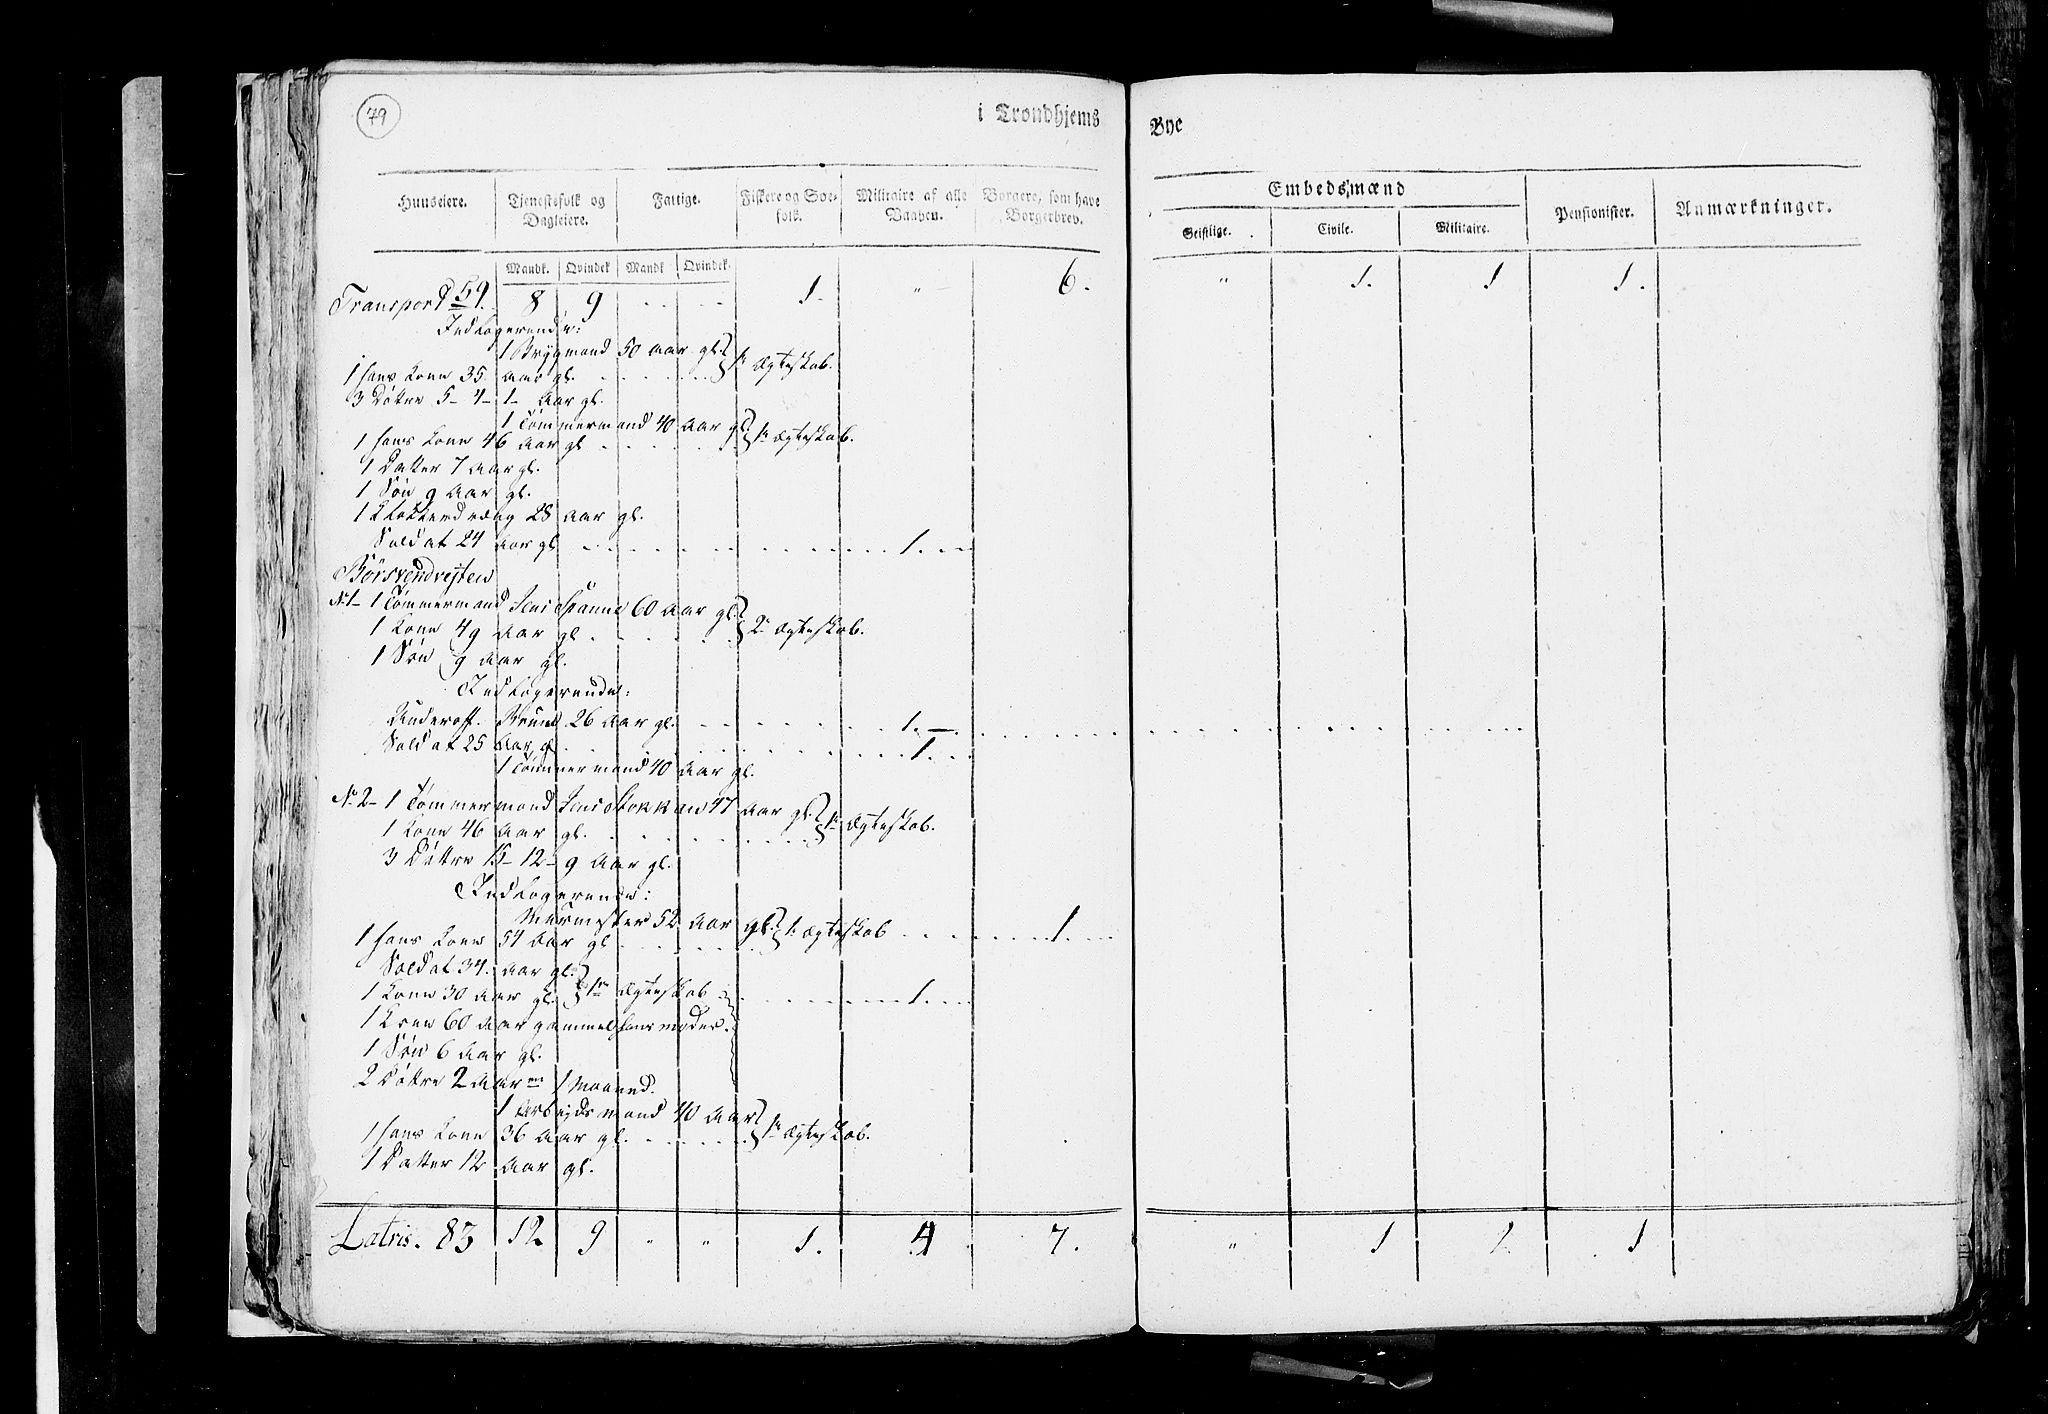 79
i Trondhjems Bye
Huuseiere. Tjenestefolk og Dagleiere. Fattige. Fiskere og Søe-folk. Militaire af alle Vaaben. Borgere, som have Borgerbrev. Embedsmænd Pensionister. Anmærkninger.
Geistlige. Civile. Militaire.
Mandk. Qvindek Mandk Qvindek.
Transport 59. 8 9 1. " 6. " 1. 1 1.
Indlogerende:
1 Brygmand 50 Aar gl.
1 hans Kone 35 Aar gl. 1te Ægteskab.
3 Døttre 5- 4- 1- Aar gl.
1 Tømmermand 40 Aar gl.
1 hans Kone 46 Aar gl 1te Ægteskab.
1 Datter 7 Aar gl.
1 Søn 9 Aar gl.
1 Klokkerdræng 28 Aar gl.
Soldat 24 Aar gl 1.
No 1- 1 Tømmermand Jens 60 Aar gl.
1 Kone 49 Aar gl. 2t Ægteskab.
1 Søn 9 Aar gl.
Indlogerende:
Underoff. 26 Aar gl. 1.
Soldat 25 Aar g. 1.
1 Tømmermand 40 Aar gl.
No 2- 1 Tømmermand Jens Stokkan 47 Aar gl.
1 Kone 46 Aar gl. 1te Ægteskab.
3 Døttre 15- 12- 9 Aar gl.
Indlogerende:
Murmester 52 Aar gl.
1 hans Kone 54 Aar gl 1. Ægteskab 1.
Soldat 34. Aar gl.
1 Kone 30 Aar gl. 1te Ægteskab 1.
1 Kone 60 Aar gammel hans moder.
1 Søn 6 Aar gl.
2 Døttre 2 Aar 1 Maaned.
1 Arbeidsmand 40 Aar
1 hans Kone 36 Aar gl. 1te Ægteskab.
1 Datter 12 Aar gl.
Latris. 83 12 9 " " 1. 4 7. " 1 1 1